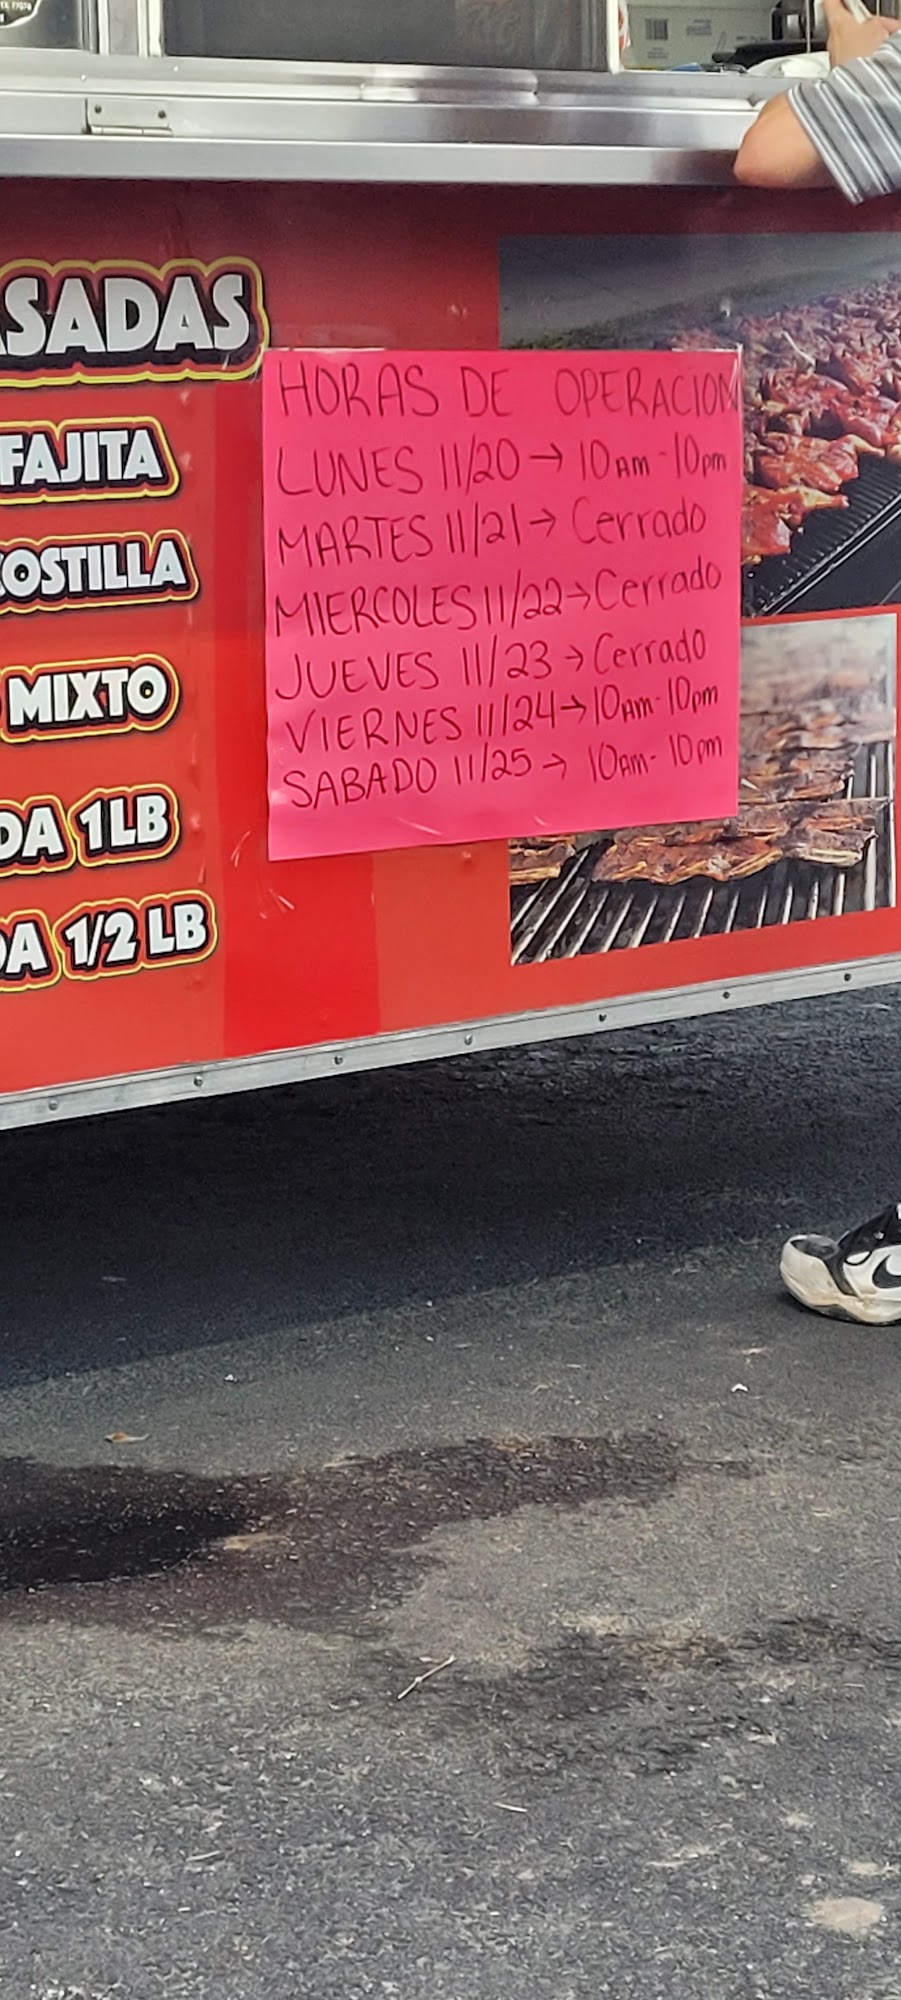 ASADAS
FAJITA
COSTILLA
MIXTO
DA 1LB
DA 1/2 LB
HORAS DE OPERACION
LUNES 11/20 → 10Am - 10pm
MARTES 11/21 → Cerrado
MIERCOLES 11/22 → Cerrado
JUEVES 11/23 → Cerrado
VIERNES 11/24 → 10Am - 10pm
SABADO 11/25 → 10am - 10pm